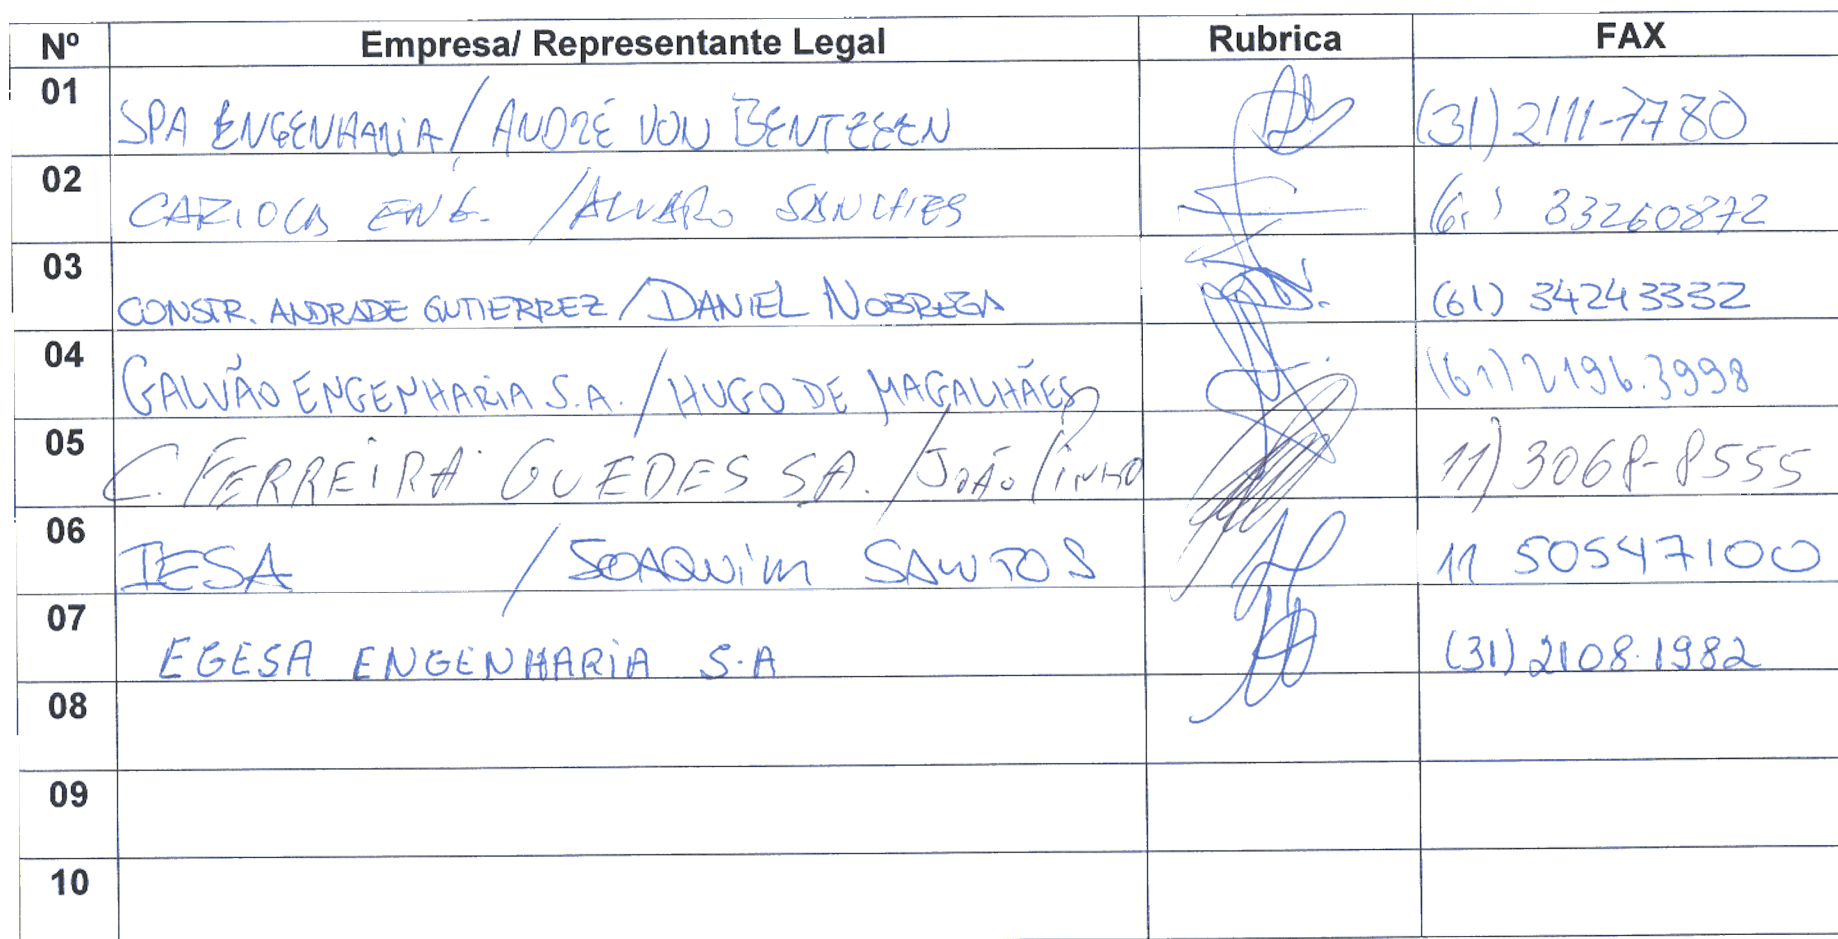 Nº Empresa/ Representante Legal Rubrica FAX
01 SPA ENGENHARIA / ANDRÉ VON BENTZEEN (31) 2111-7780
02 CARIOCA ENG. / ALVARO SANCHES (61) 33260872
03 CONSTR. ANDRADE GUTIERREZ / DANIEL NOBREGA (61) 34243332
04 GALVÃO ENGENHARIA S.A. / HUGO DE MAGALHÃES (61) 2196.3998
05 C. FERREIRA GUEDES SA. / JOÃO PINHO 11) 3068-8555
06 IESA / JOAQUIM SANTOS 11 50547100
07 EGESA ENGENHARIA S.A (31) 2108.1982
08
09
10